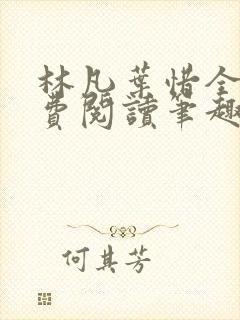 林凡葉惜全
費閱讀筆趣
何其芳